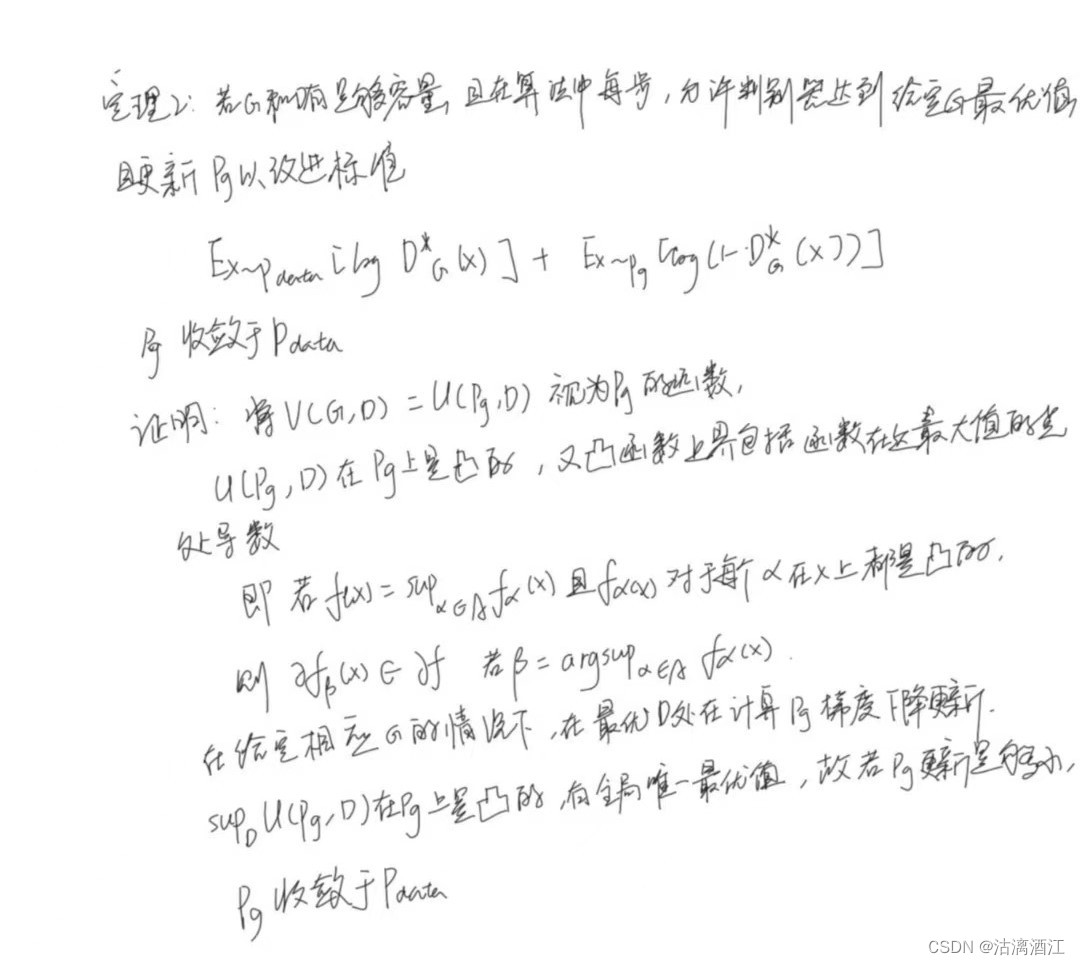 定理2: 若G和D有足够容量, 且在算法中每步, 允许判别器达到给定G最优值,
且更新 Pg以改进标准
Ex~Pdata [log D*G(x)] + Ex~Pg [log(1-D*G(x))]
Pg 收敛于 Pdata
证明: 将 V(G,D) = U(Pg,D) 视为Pg的函数,
U(Pg,D)在 Pg上是凸的, 又凸函数上界包括函数在达最大值的点
处导数
即 若 f(x) = sup α∈A fα(x) 且 fα(x) 对于每个 α 在x上都是凸的,
则 ∂fβ(x) ∈ ∂f 若 β = argsup α∈A fα(x).
在给定相应G的情况下, 在最优D处在计算 Pg 梯度下降更新.
supD U(Pg,D)在Pg上是凸的, 有全局唯一最优值, 故若Pg更新足够小,
Pg 收敛于Pdata
CSDN @沽漓酒江